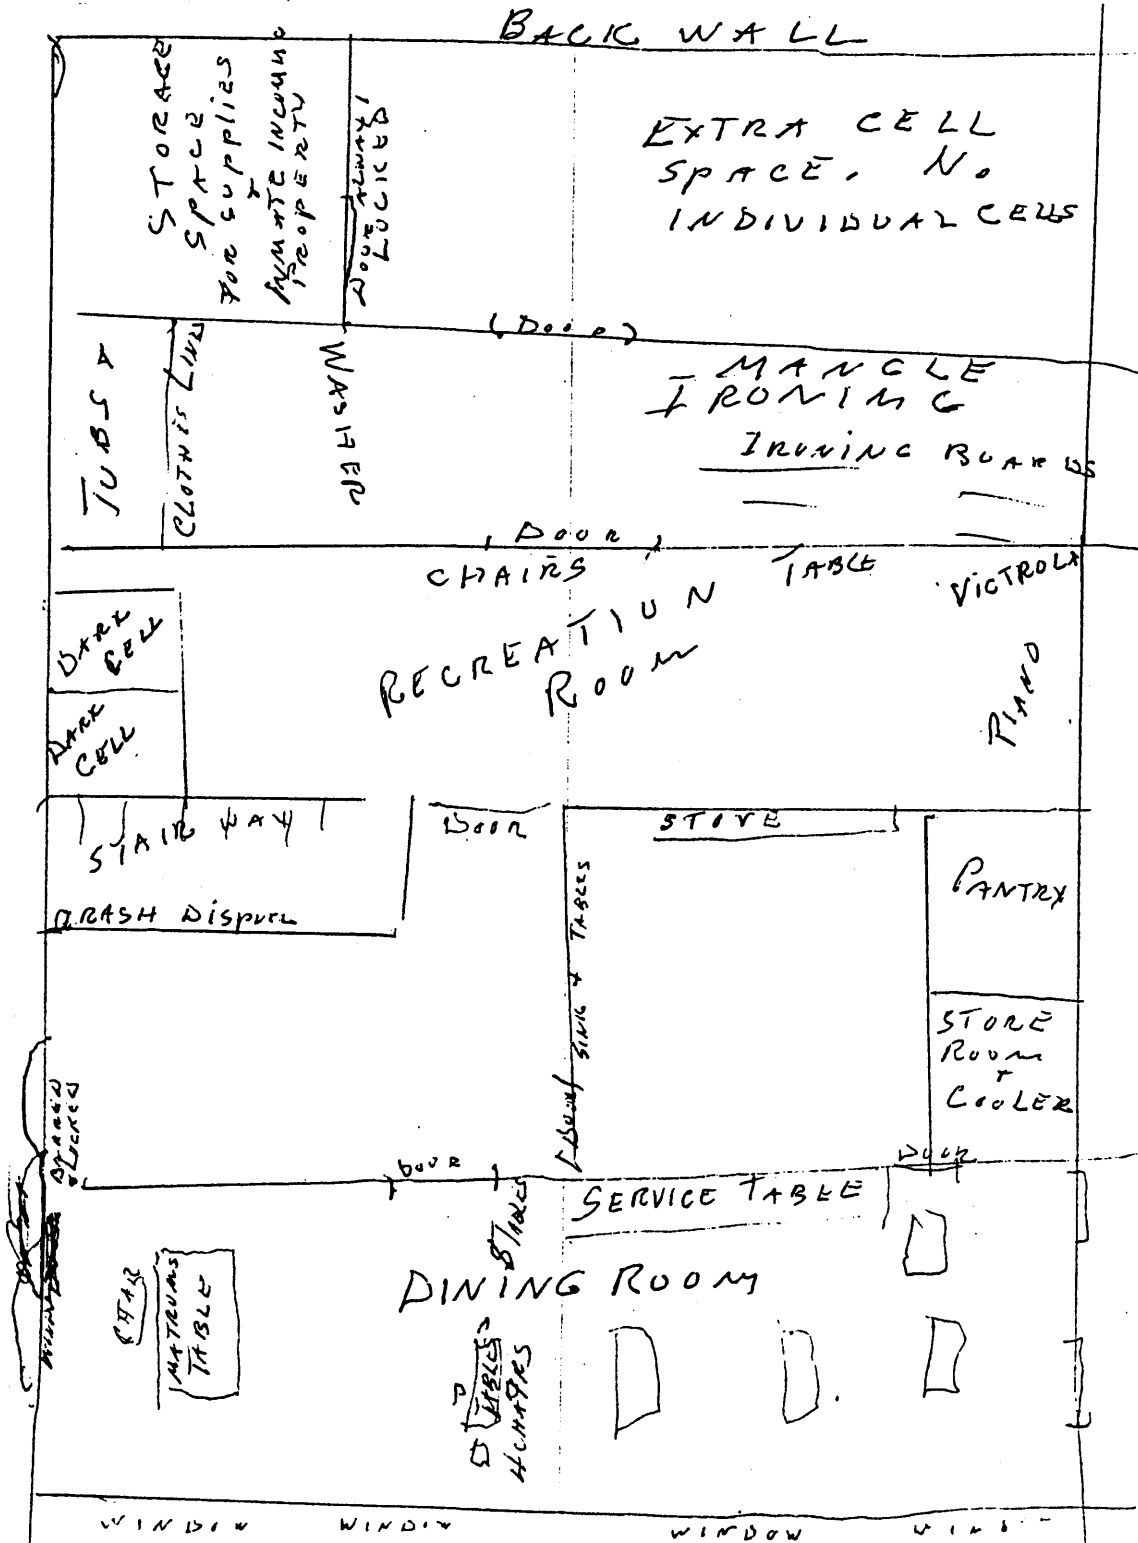 BACK WALL
STORAGE
SPACE
FOR SUPPLIES
+
INMATE INCOMING
PROPERTY
DOOR ALWAYS
LOCKED
EXTRA CELL
SPACE. NO
INDIVIDUAL CELLS
(DOOR)
TUBS +
CLOTHES LINES
WASHER
MANGLE
IRONING
IRONING BOARDS
DOOR
CHAIRS
TABLE
VICTROLA
DARK
CELL
RECREATION
ROOM
PIANO
DARK
CELL
STAIR WAY
DOOR
STOVE
TRASH DISPOSAL
SINK + TABLES
PANTRY
STORE
ROOM
+
COOLER
BARRED
LOCKED
DOOR
DOOR
DOOR
SERVICE TABLE
8 TABLES
DINING ROOM
CHAIR
MATRONS
TABLE
TABLES
4 CHAIRS
WINDOW
WINDOW
WINDOW